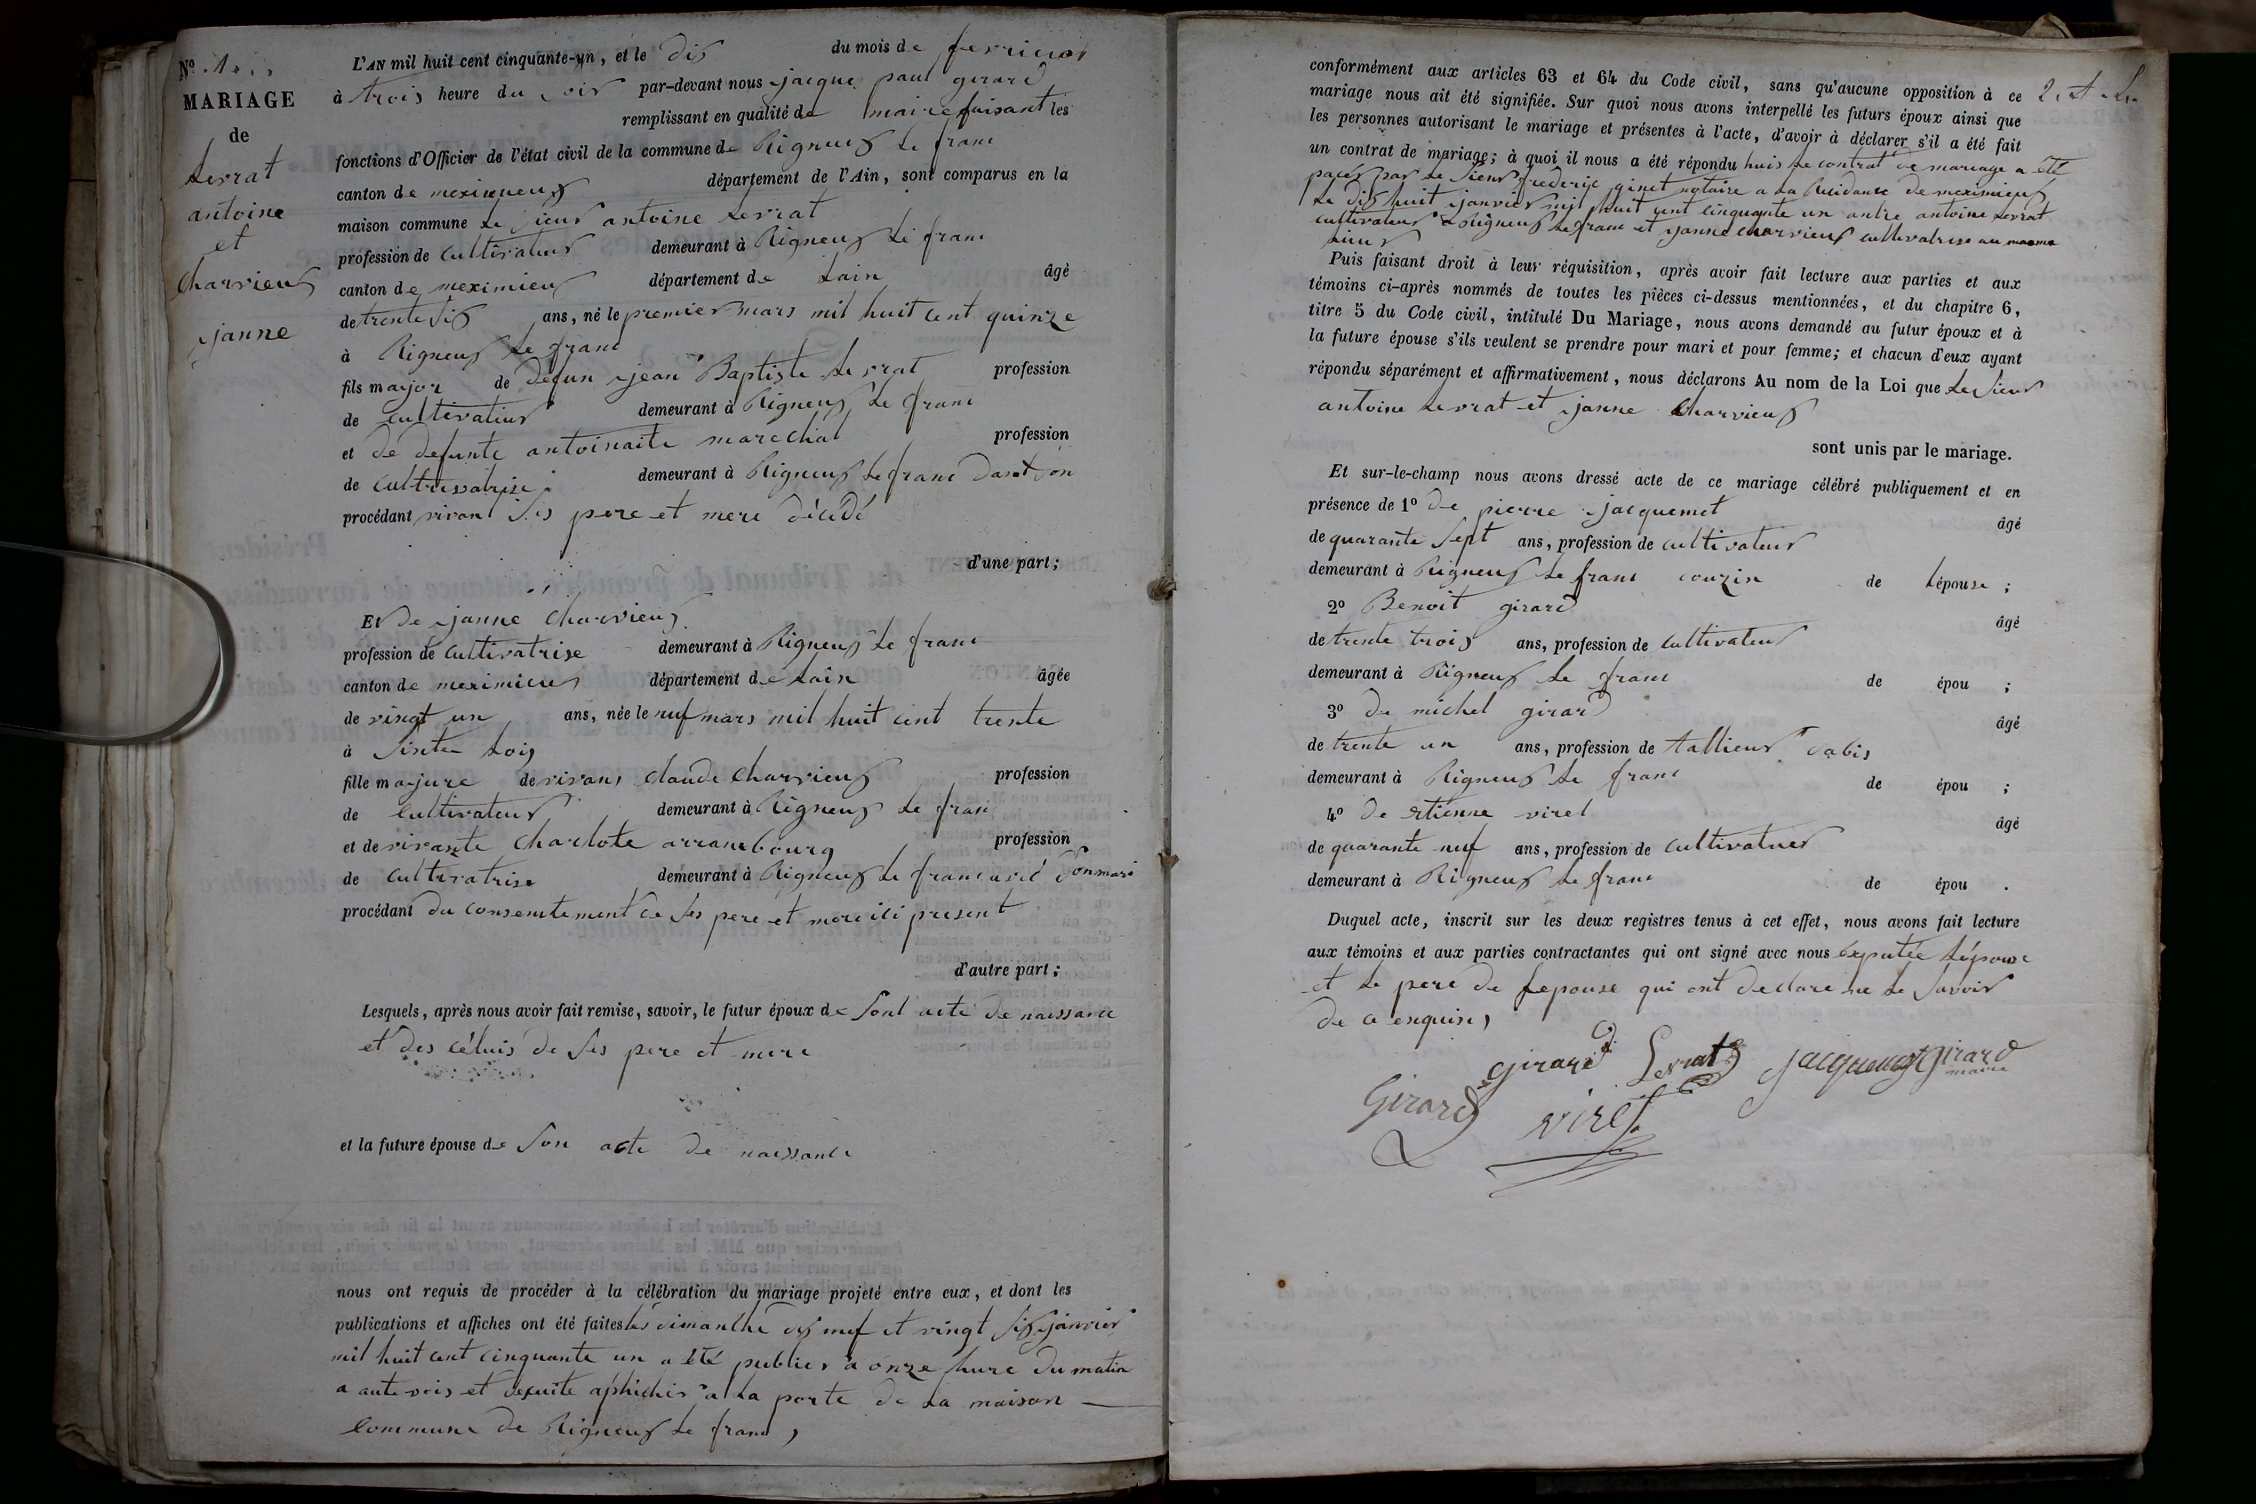 N° 1
MARIAGE
de
Levrat
antoine
et
Charvieux
janne
L'AN mil huit cent cinquante-un, et le dix du mois de ferrieur
à trois heure du soir par-devant nous jacque paul girard
remplissant en qualité de maire faisant les
fonctions d'Officier de l'état civil de la commune de Rigneux le franc
canton de meximieux département de l'Ain, sont comparus en la
maison commune Le sieur antoine Levrat
profession de cultivateur demeurant à Rigneux Le franc
canton de meximieux département de Lain âgé
de trente six ans, né le premier mars mil huit cent quinze
à Rigneux Le franc
fils majour de defun jean Baptiste Levrat profession
de cultivateur demeurant à Rigneux Le franc
et de defunte antoinaite marechal profession
de cultivatrise demeurant à Rigneux Le franc
procédant vivan ses pere et mere décédé
d'une part;
Et De janne Charvieux
profession de cultivatrise demeurant à Rigneux Le franc
canton de meximieux département de Lain âgée
de vingt un ans, née le nuf mars mil huit cent trente
à
fille majure de vivans Claude Charvieux profession
de Cultivateur demeurant à Rigneux Le franc
et de vivante Charlote arranbourg profession
de Cultivatrise demeurant à Rigneux Le franc avec son mari
procédant du consentement de ses pere et mere ici present
d'autre part;
Lesquels, après nous avoir fait remise, savoir, le futur époux de sont acte de naissance
et des céluis de ses pere et mere
et la future épouse de son acte de naissance
nous ont requis de procéder à la célébration du mariage projeté entre eux, et dont les
publications et affiches ont été faites les dimanche dix neuf et vingt six janvier
mil huit cent cinquante un a été publier a onze hure du matin
a aute vois et aphicher a la porte de La maison
Commune de Rigneux Le franc,
2. A. L.
conformément aux articles 63 et 64 du Code civil, sans qu'aucune opposition à ce
mariage nous ait été signifiée. Sur quoi nous avons interpellé les futurs époux ainsi que
les personnes autorisant le mariage et présentes à l'acte, d'avoir à déclarer s'il a été fait
un contrat de mariage; à quoi il nous a été répondu Le contrat de mariage a été
par Le sieur frederic ginet notaire a La Residance de meximieux
Le dix huit janvier mil huit cent cinquante un antre antoine Levrat
cultivateur a Rigneux Le franc et janne charvieux cultivatrise au mesme
lieux
Puis faisant droit à leur réquisition, après avoir fait lecture aux parties et aux
témoins ci-après nommés de toutes les pièces ci-dessus mentionnées, et du chapitre 6,
titre 5 du Code civil, intitulé Du Mariage, nous avons demandé au futur époux et à
la future épouse s'ils veulent se prendre pour mari et pour femme; et chacun d'eux ayant
répondu séparément et affirmativement, nous déclarons Au nom de la Loi que Le Sieur
antoine Levrat et janne Charvieux
sont unis par le mariage.
Et sur-le-champ nous avons dressé acte de ce mariage célébré publiquement et en
présence de 1° De pierre jacquemet âgé
de quarante sept ans, profession de cultivateur
demeurant à Rigneux Le franc couzin de Lépouse;
2° Benoit girard âgé
de trente trois ans, profession de cultivateur
demeurant à Rigneux Le franc de épou ;
3° De michel girard âgé
de trente un ans, profession de tallieur dabis
demeurant à Rigneux Le franc de épou ;
4° De etienne viret âgé
de quarante nuf ans, profession de cultivatuer
demeurant à Rigneux Le franc de épou .
Duquel acte, inscrit sur les deux registres tenus à cet effet, nous avons fait lecture
aux témoins et aux parties contractantes qui ont signé avec nous Lépouse
et Le pere de Lepouse qui ont declare ne le savoir
de a enquis,
girard Levrat jacquemet girard
maire
Girard viret